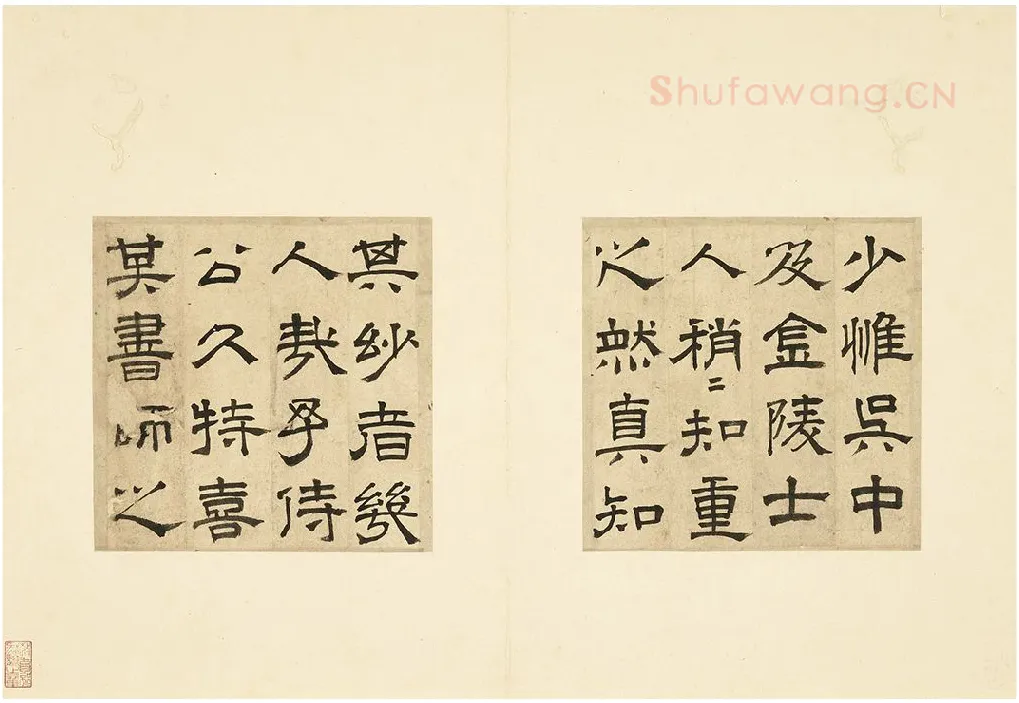 Shufawang.CN
少惟吳中
及金陵士
人稍〻知重
之然真知
其紗者幾
人哉予侍
公久特喜
其書師之